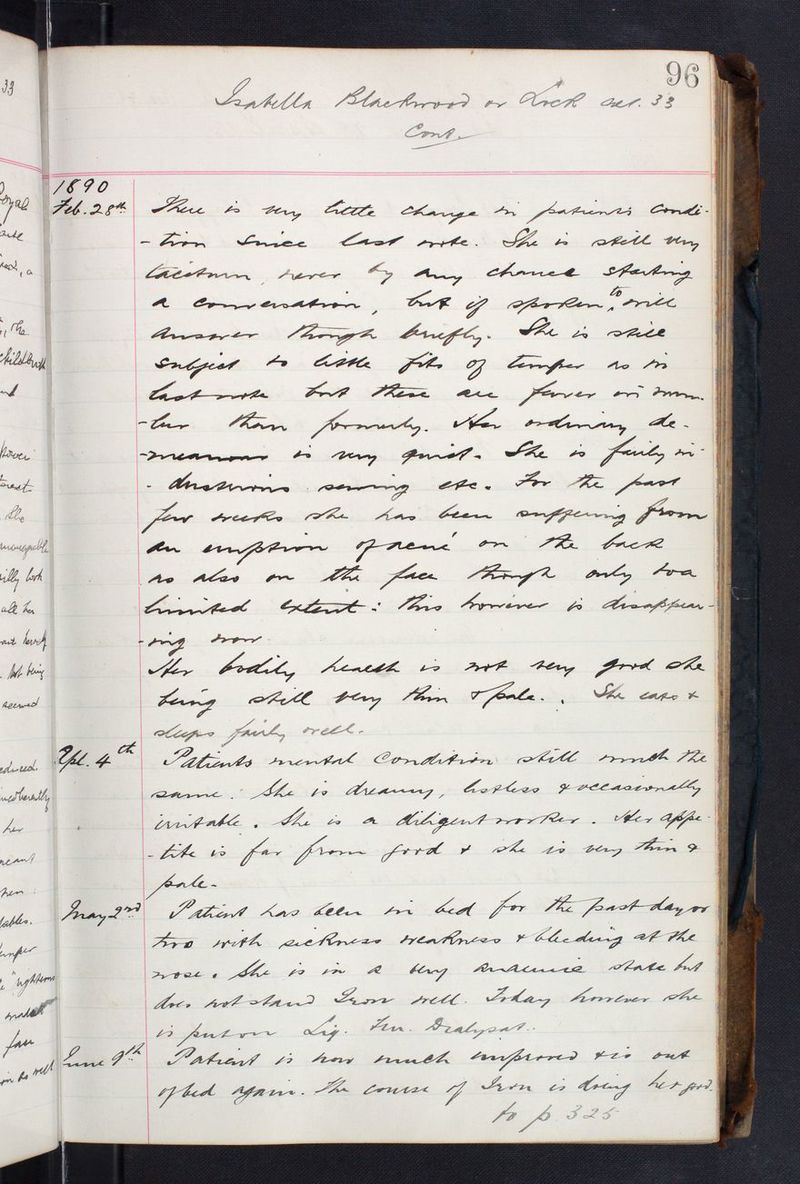 96
Isabella Blackwood or Lock aet. 33
Cont.
1890
Feb. 28th There is very little change in patient's condi-
-tion since last note. She is still very
taciturn, never by any chance starting
a conversation, but if spoken to, will
answer though briefly. She is still
subject to little fits of temper as in
last note but these are fewer in num-
-ber than formerly. Her ordinary de-
-meanour is very quiet. She is fairly in-
-dustrious sewing etc. For the past
few weeks she has been suffering from
an eruption of acné on the back
as also on the face though only to a
limited extent: this however is disappear-
-ing now.
Her bodily health is not very good she
being still very thin & pale. She eats &
sleeps fairly well.
Apl. 4th Patients mental condition still much the
same. She is dreamy, listless & occasionally
irritable. She is a diligent worker. Her appe-
-tite is far from good & she is very thin &
pale.
May 2nd Patient has been in bed for the past day or
two with sickness weakness & bleeding at the
nose. She is in a very anaemic state but
does not stand Iron well. Today however she
is put on Liq. Ferri Dialysat.
June 9th Patient is now much improved & is out
of bed again. The course of Iron is doing her good.
to p. 325